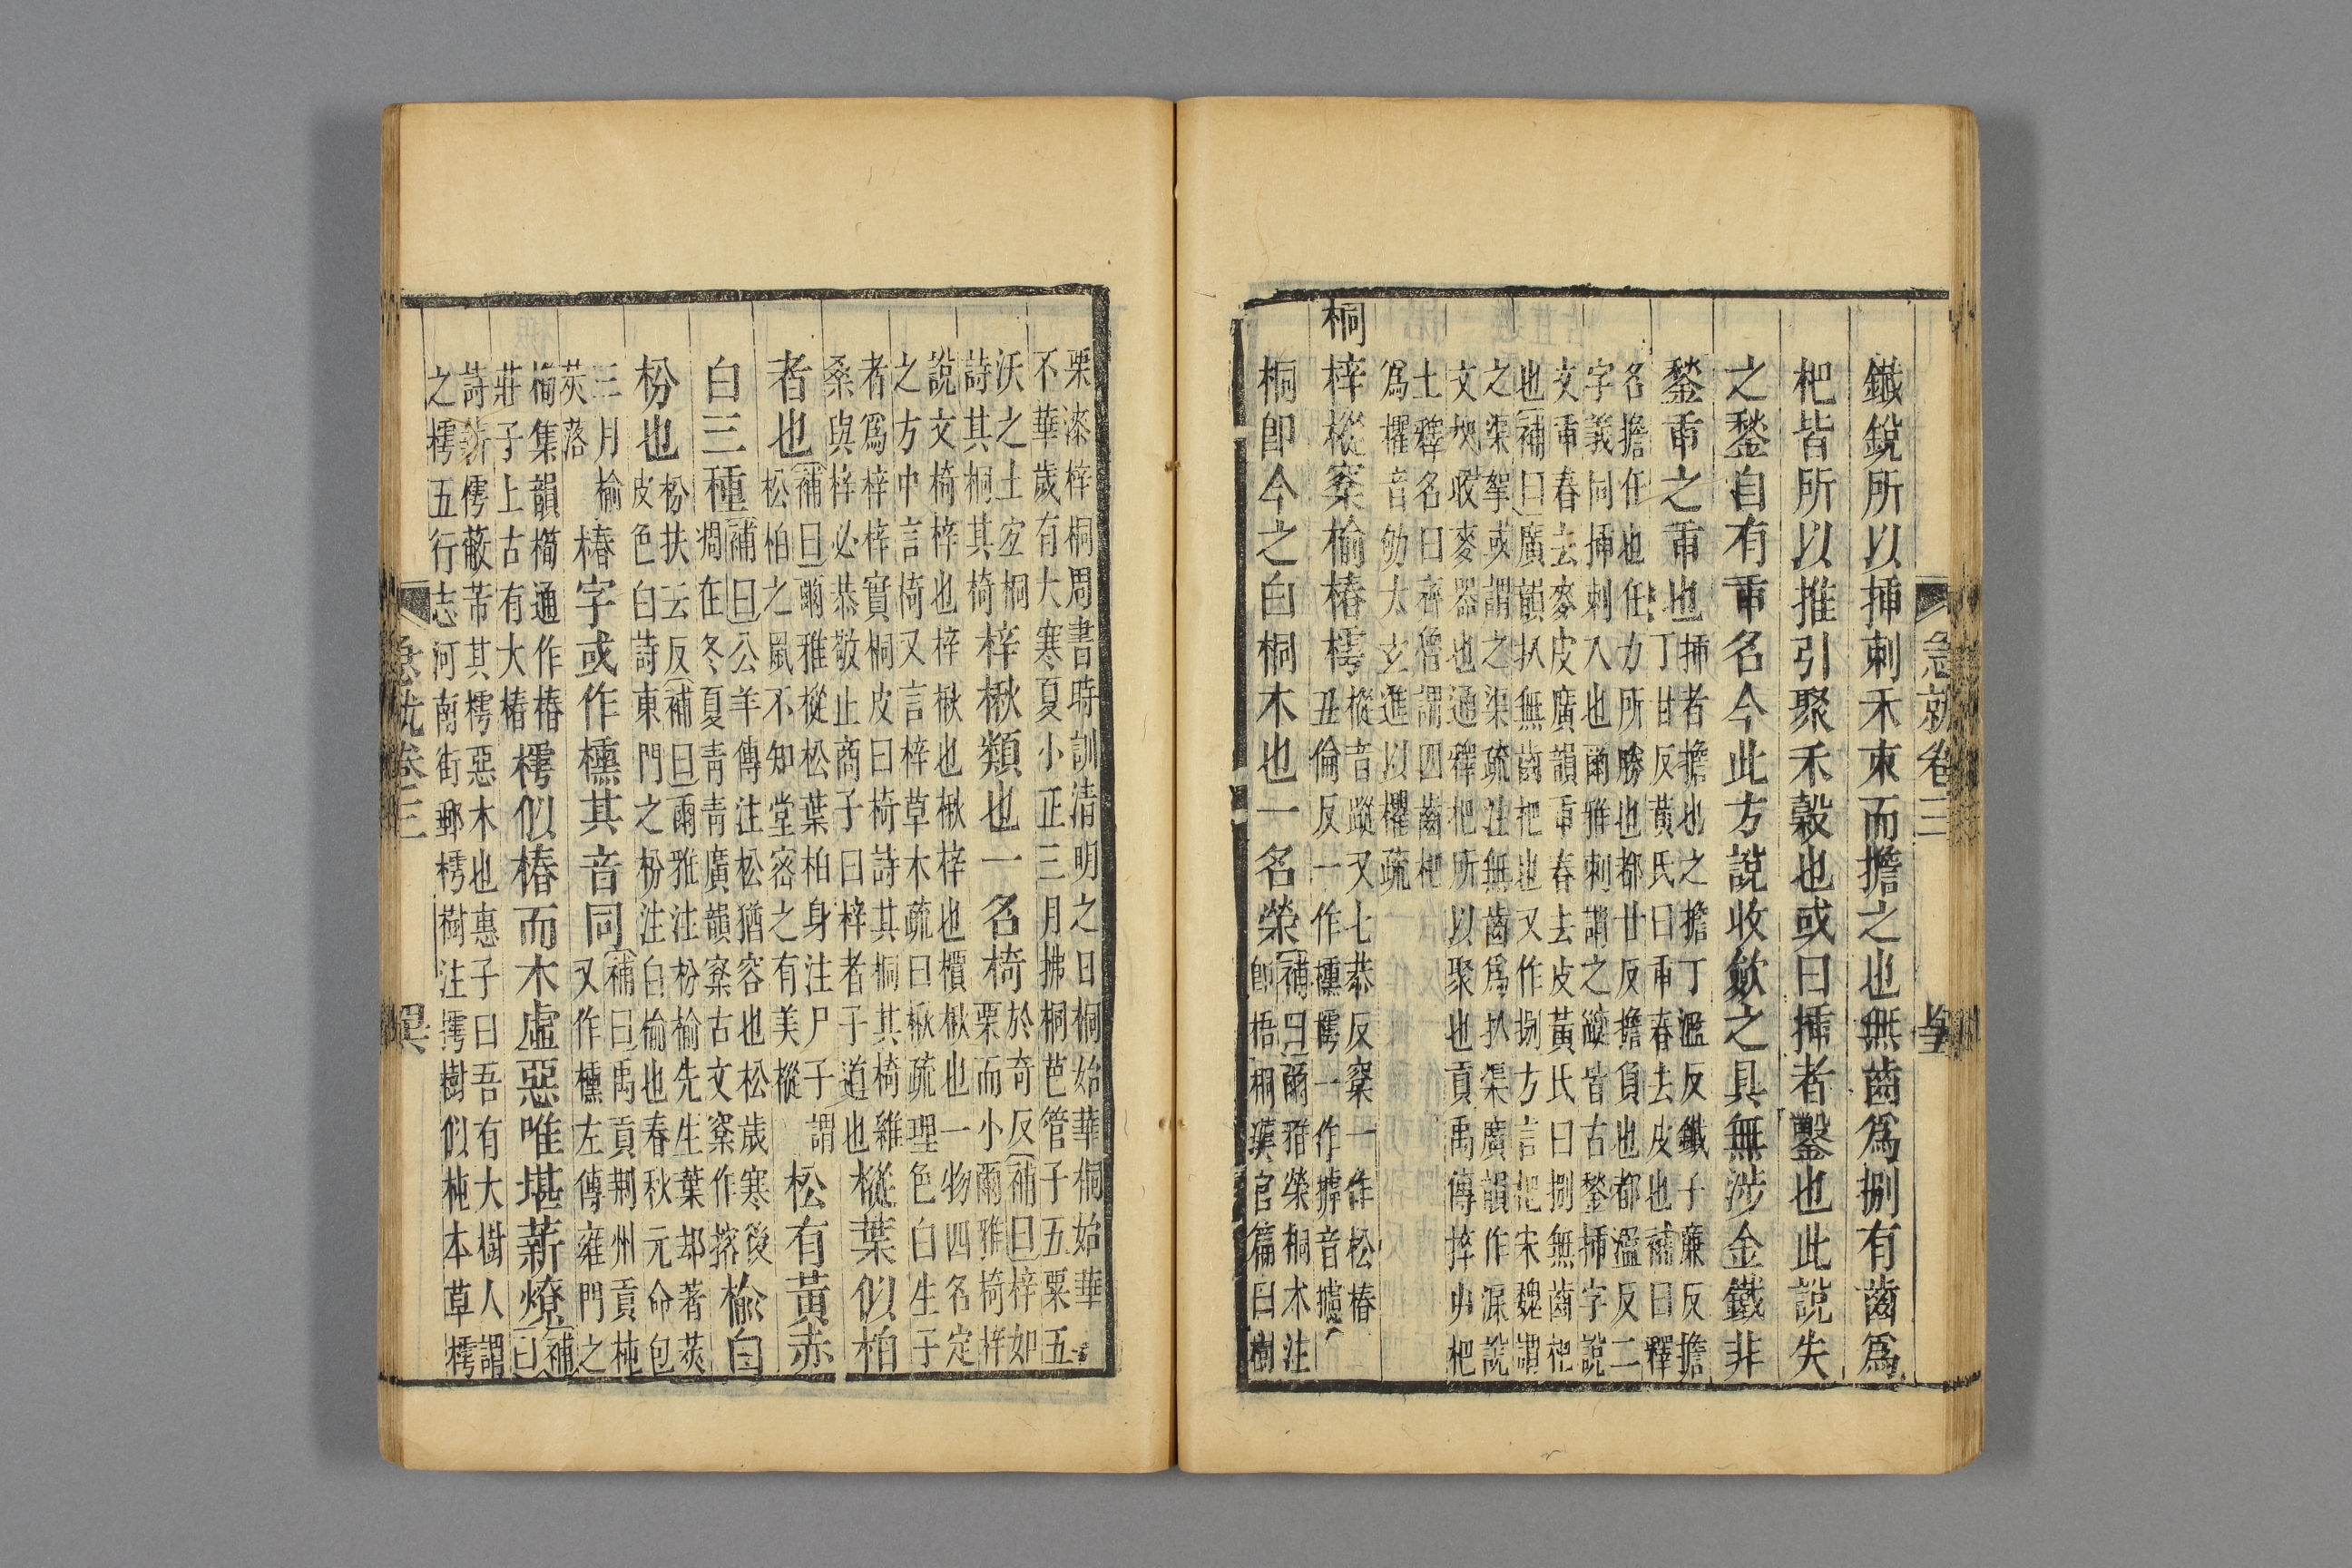 急就卷三
鐵銳所以揷刺禾束而擔之也無齒爲捌有齒爲
杷皆所以推引聚禾穀也或曰揷者鑿也此說失
之鍫自有臿名今此方說收斂之具無涉金鐵非
鍫臿之臿也
揷者擔也之擔丁濫反鐵子廉反擔
丁甘反黃氏曰臿舂去皮也補曰釋
名擔任也任力所勝也都甘反擔負也都濫反二
字義同揷刺入也爾雅刺謂之疀皆古鍫揷字說
文臿舂去麥皮廣韻臿舂去皮黃氏曰捌無齒杷
也補曰廣韻扒無齒杷也又作捌方言杷宋魏謂
之渠挐或謂之渠疏注無齒爲扒渠廣韻作淭說
文杷收麥器也通釋杷所以聚也貢禹傳捽屮杷
土釋名曰齊魯謂四齒杷
爲欋音劬太玄進以欋疏
桐梓樅榕榆椿樗
樅音蹤又七恭反一作松椿
丑倫反一作櫄樗一作摢音攄
桐卽今之白桐木也一名榮
補曰爾雅榮桐木注
卽梧桐漢官篇曰樹
栗漆梓桐周書時訓清明之日桐始華桐始華
不華歲有大寒夏小正三月拂桐芭管子五粟五
沃之土宜桐
詩其桐其椅
梓楸類也一名椅
於奇反補曰梓如
栗而小爾雅椅梓
說文椅梓也梓楸也楸梓也檟楸也一物四名定
之方中言椅又言梓草木疏曰楸疏理色白生子
者爲梓梓實桐皮曰椅詩其桐其椅雖
桑與梓必恭敬止商子曰梓者子道也
樅葉似柏
者也
補曰爾雅樅松葉柏身注尸子謂
松柏之鼠不知堂密之有美樅
松有黃赤
白三種
補曰公羊傳注松猶容也松歲寒後
凋在冬夏青青廣韻榕古文榕作㮤
榆白
枌也
枌扶云反補曰爾雅注枌榆先生葉却著莢
皮色白詩東門之枌注白榆也春秋元命包
三月榆
莢落
椿字或作櫄其音同
補曰禹貢荆州貢杶
又作櫄左傳雍門之
橁集韻橁通作椿
莊子上古有大椿
樗似椿而木虛惡唯堪薪燎
補
曰
詩薪樗蔽芾其樗惡木也惠子曰吾有大樹人謂
之樗五行志河南街郵樗樹注樗樹似杶本草樗
急就卷三